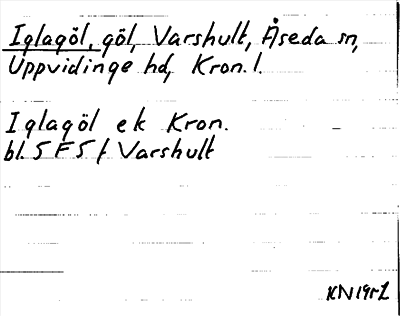 Iglagöl, göl, Varshult, Åseda sn,
Uppvidinge hd, Kron. l.
Iglagöl ek Kron.
bl. 5 F 5 f Varshult